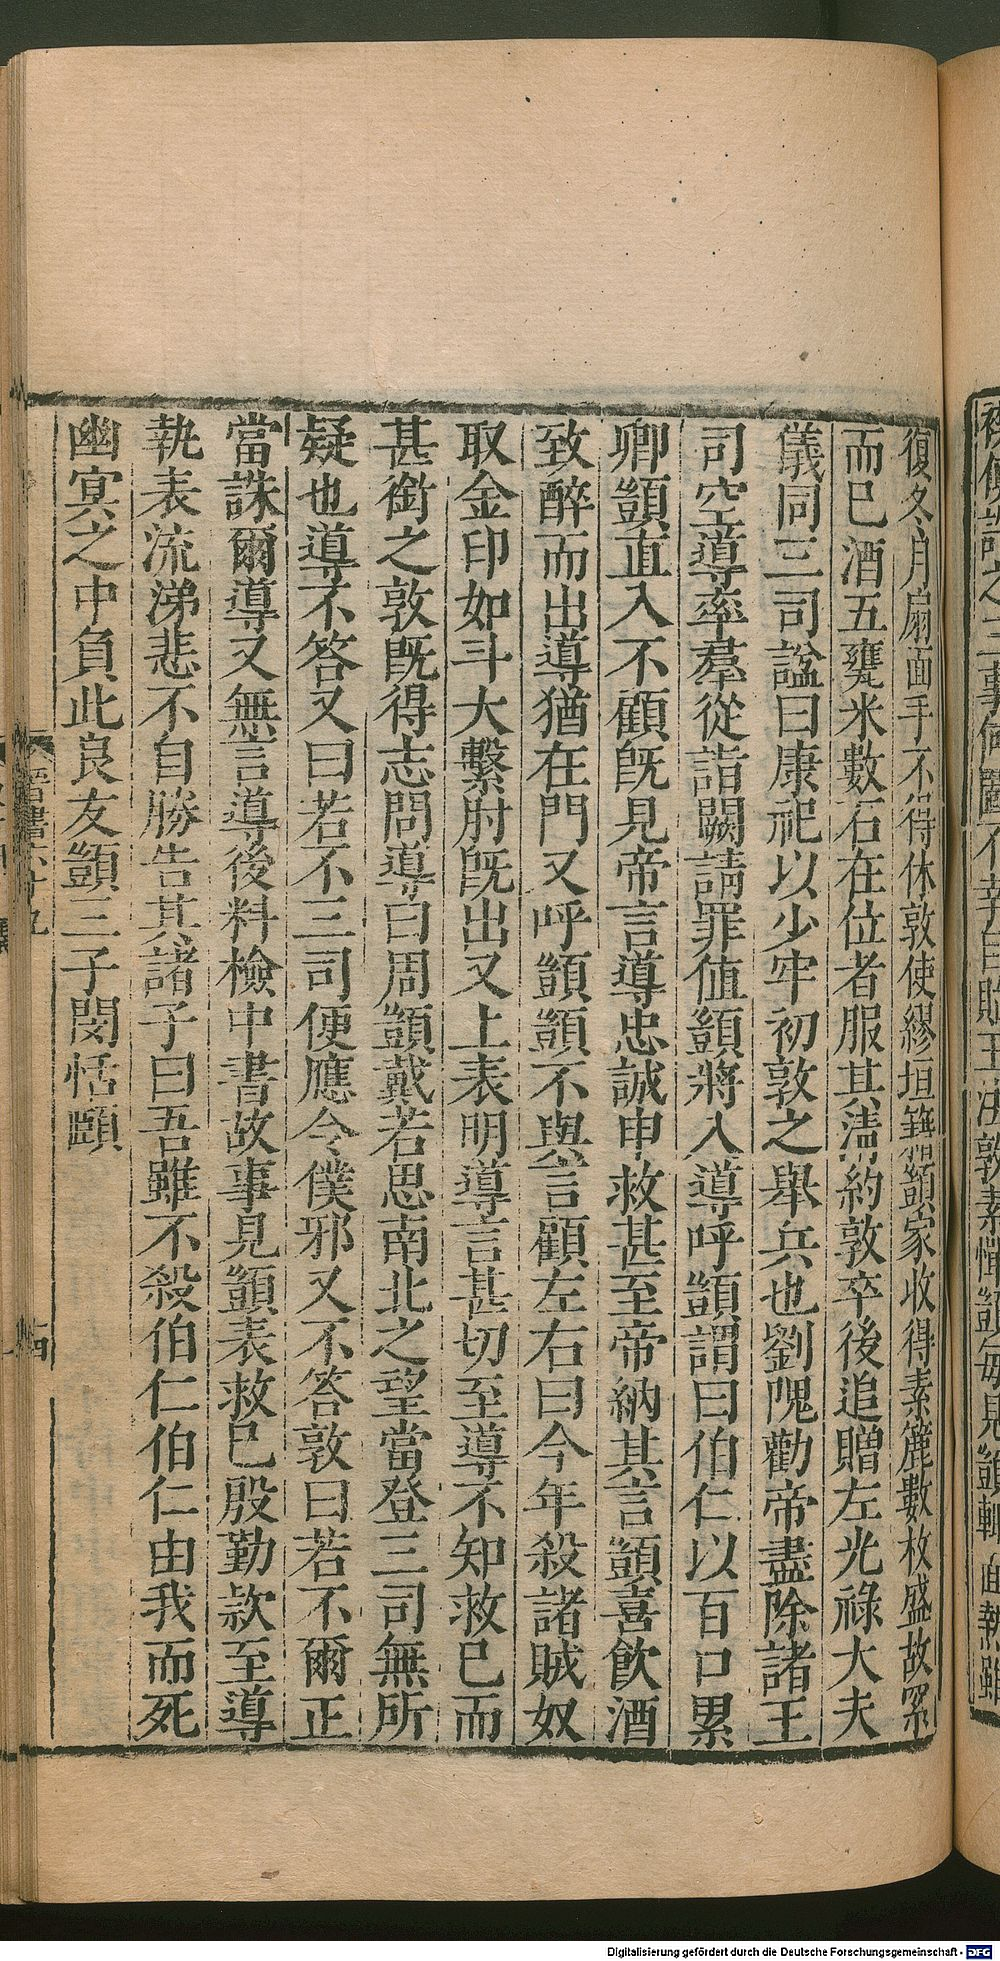 復冬月扇面手不得休敦使繆坦籍顗家收得素簏數枚盛故絮
而已酒五甕米數石在位者服其清約敦卒後追贈左光祿大夫
儀同三司諡曰康祀以少牢初敦之舉兵也劉隗勸帝盡除諸王
司空導率羣從詣闕請罪值顗將入導呼顗謂曰伯仁以百口累
卿顗直入不顧旣見帝言導忠誠申救甚至帝納其言顗喜飲酒
致醉而出導猶在門又呼顗顗不與言顧左右曰今年殺諸賊奴
取金印如斗大繫肘旣出又上表明導言甚切至導不知救已而
甚銜之敦旣得志問導曰周顗戴若思南北之望當登三司無所
疑也導不答又曰若不三司便應令僕邪又不答敦曰若不爾正
當誅爾導又無言導後料檢中書故事見顗表救已殷勤款至導
執表流涕悲不自勝告其諸子曰吾雖不殺伯仁伯仁由我而死
幽冥之中負此良友顗三子閔恬頤
晉書六十九
十四
Digitalisierung gefördert durch die Deutsche Forschungsgemeinschaft - DFG